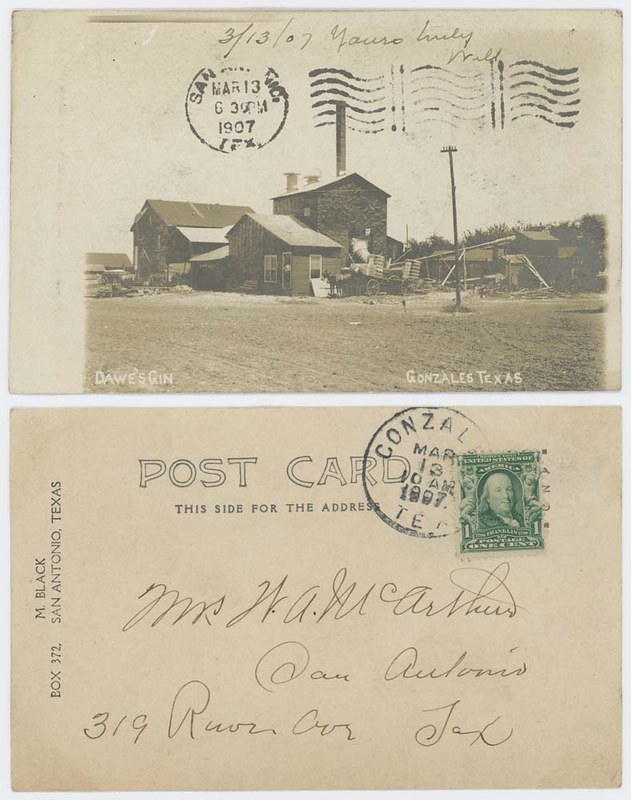 3/13/07 Yours truly
Will
SAN ANTONIO,
MAR 13
6 30 PM
1907
TEX.
DAWE'S GIN
GONZALES TEXAS
POST CARD
THIS SIDE FOR THE ADDRESS
GONZAL
MAR
13
10 AM
1907
TEX
UNITED STATES OF
AMERICA
1 FRANKLIN 1
POSTAGE
ONE CENT
M. BLACK
BOX 372, SAN ANTONIO, TEXAS
Mrs W. A. McArthur
San Antonio
319 River Ave Tex